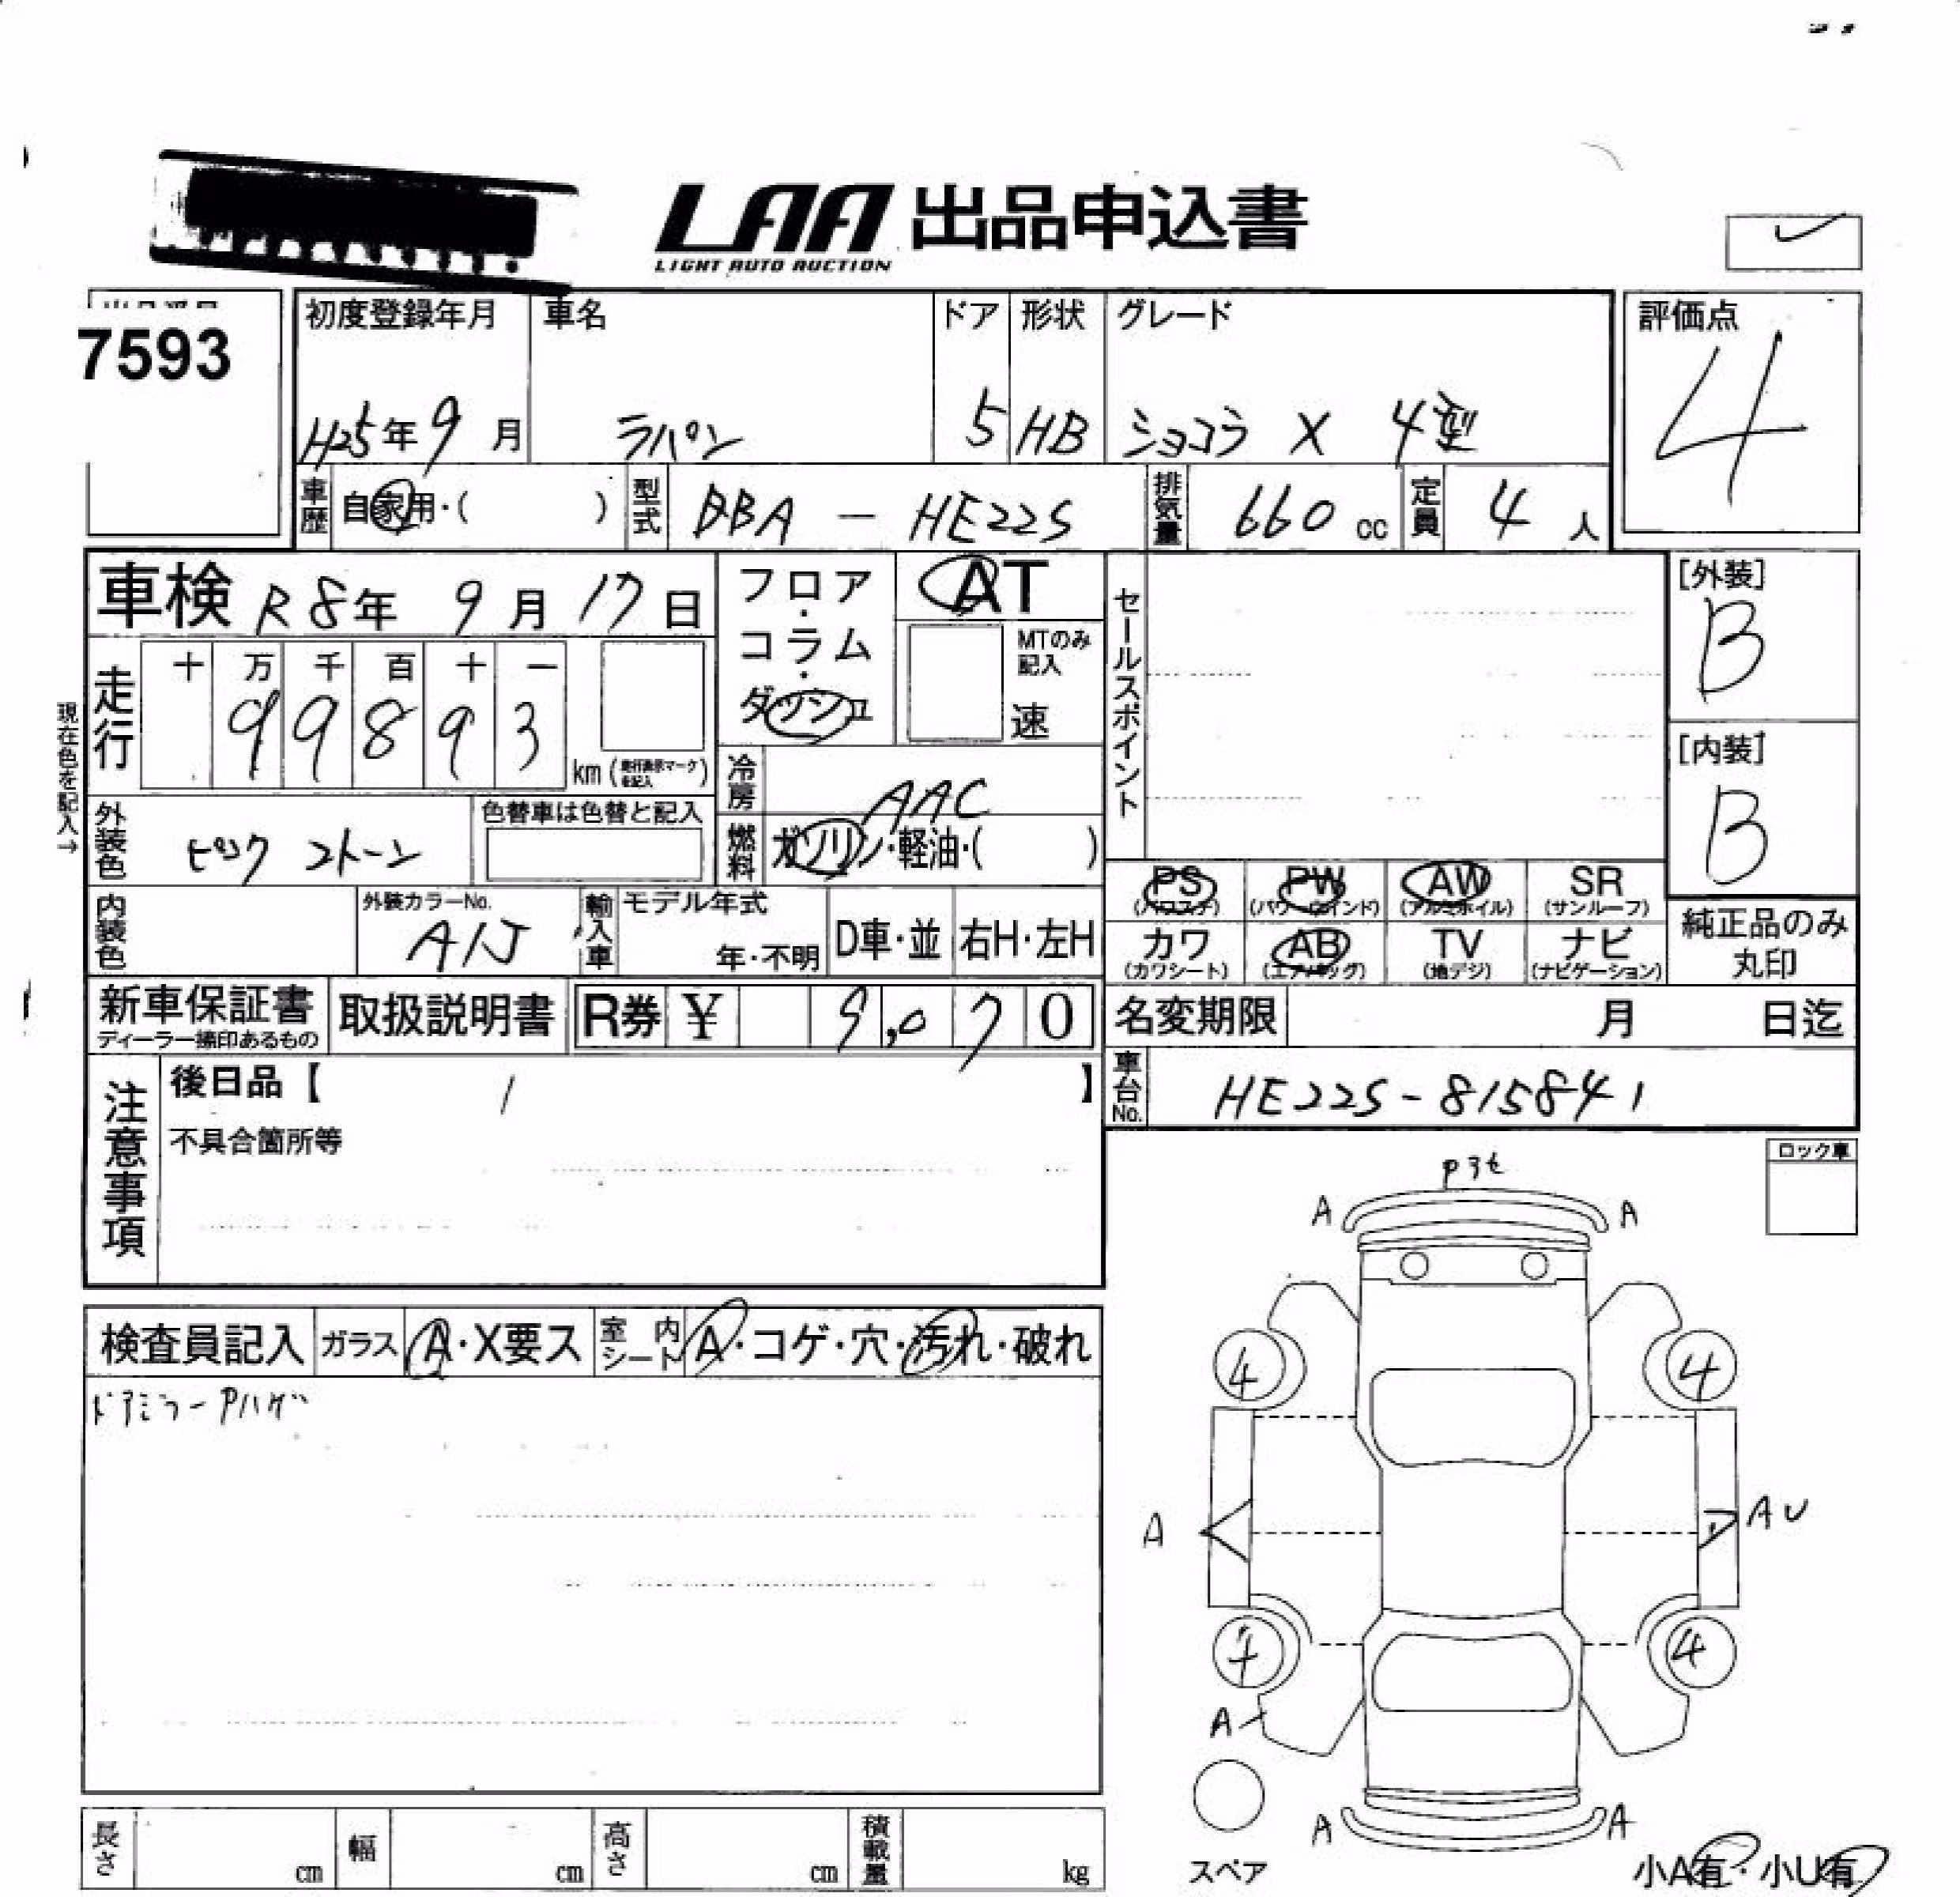 LAA 出品申込書
LIGHT AUTO AUCTION
7593
初度登録年月 車名 ドア 形状 グレード 評価点
H25年 9月 ラパン 5 HB ショコラ X 4型 4
車歴 自家用・( ) 型式 DBA - HE22S 排気量 660 cc 定員 4 人
車検 R8年 9月 17日
フロア・コラム・ダッシュ AT
MTのみ記入 速
セールスポイント
[外装] B
[内装] B
現在色を記入→
走行 十 万 千 百 十 一
9 9 8 9 3 km (走行表示マークを記入)
冷房 AAC
外装色 ピンク 2トーン 色替車は色替と記入
燃料 ガソリン・軽油・( )
PS (パワステ) PW (パワーウインド) AW (アルミホイル) SR (サンルーフ)
カワ (カワシート) AB (エアバッグ) TV (地デジ) ナビ (ナビゲーション)
純正品のみ丸印
内装色 外装カラーNo. A1J 輸入車 モデル年式 年・不明 D車・並 右H・左H
新車保証書 ディーラー捺印あるもの 取扱説明書 R券 ¥ 9,070
名変期限 月 日迄
車台No. HE22S-815841
注意事項 後日品【 / 】
不具合箇所等
ロック車
Pスレ
A A
検査員記入 ガラス A・X要ス 室内シート A・コゲ・穴・汚れ・破れ
ドアミラーPハゲ
4 4
A AU
4 4
A
A A
スペア
小A有・小U有
長さ cm 幅 cm 高さ cm 積載量 kg